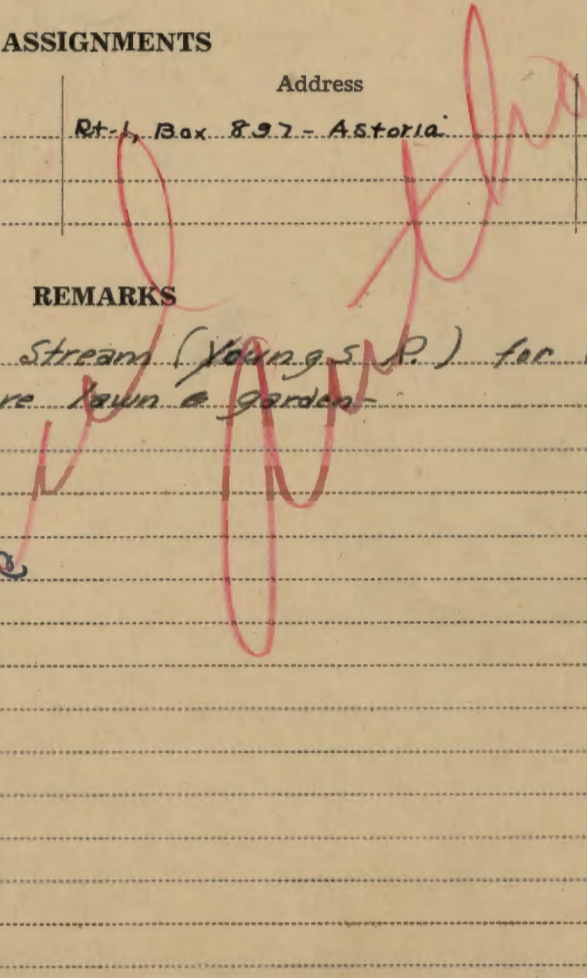 ASSIGNMENTS
Address
Rt-1, Box 897 - Astoria
REMARKS
Stream (Youngs R.) for
re lawn & garden-